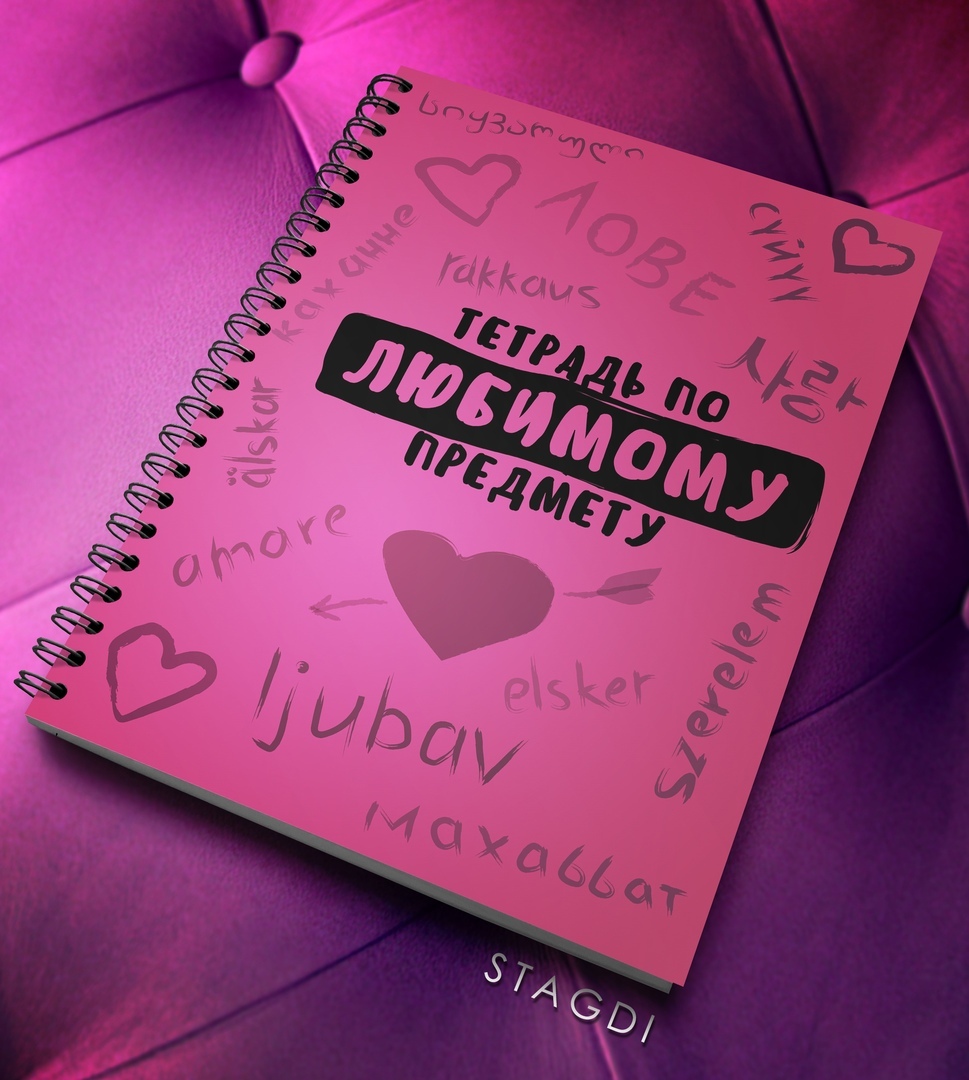 სიყვარული
ЛОВЕ
сүйүү
rakkaus
каханне
사랑
ТЕТРАДЬ ПО
ЛЮБИМОМУ
ПРЕДМЕТУ
älskar
amore
Szerelem
elsker
ljubav
махаббат
STAGDI